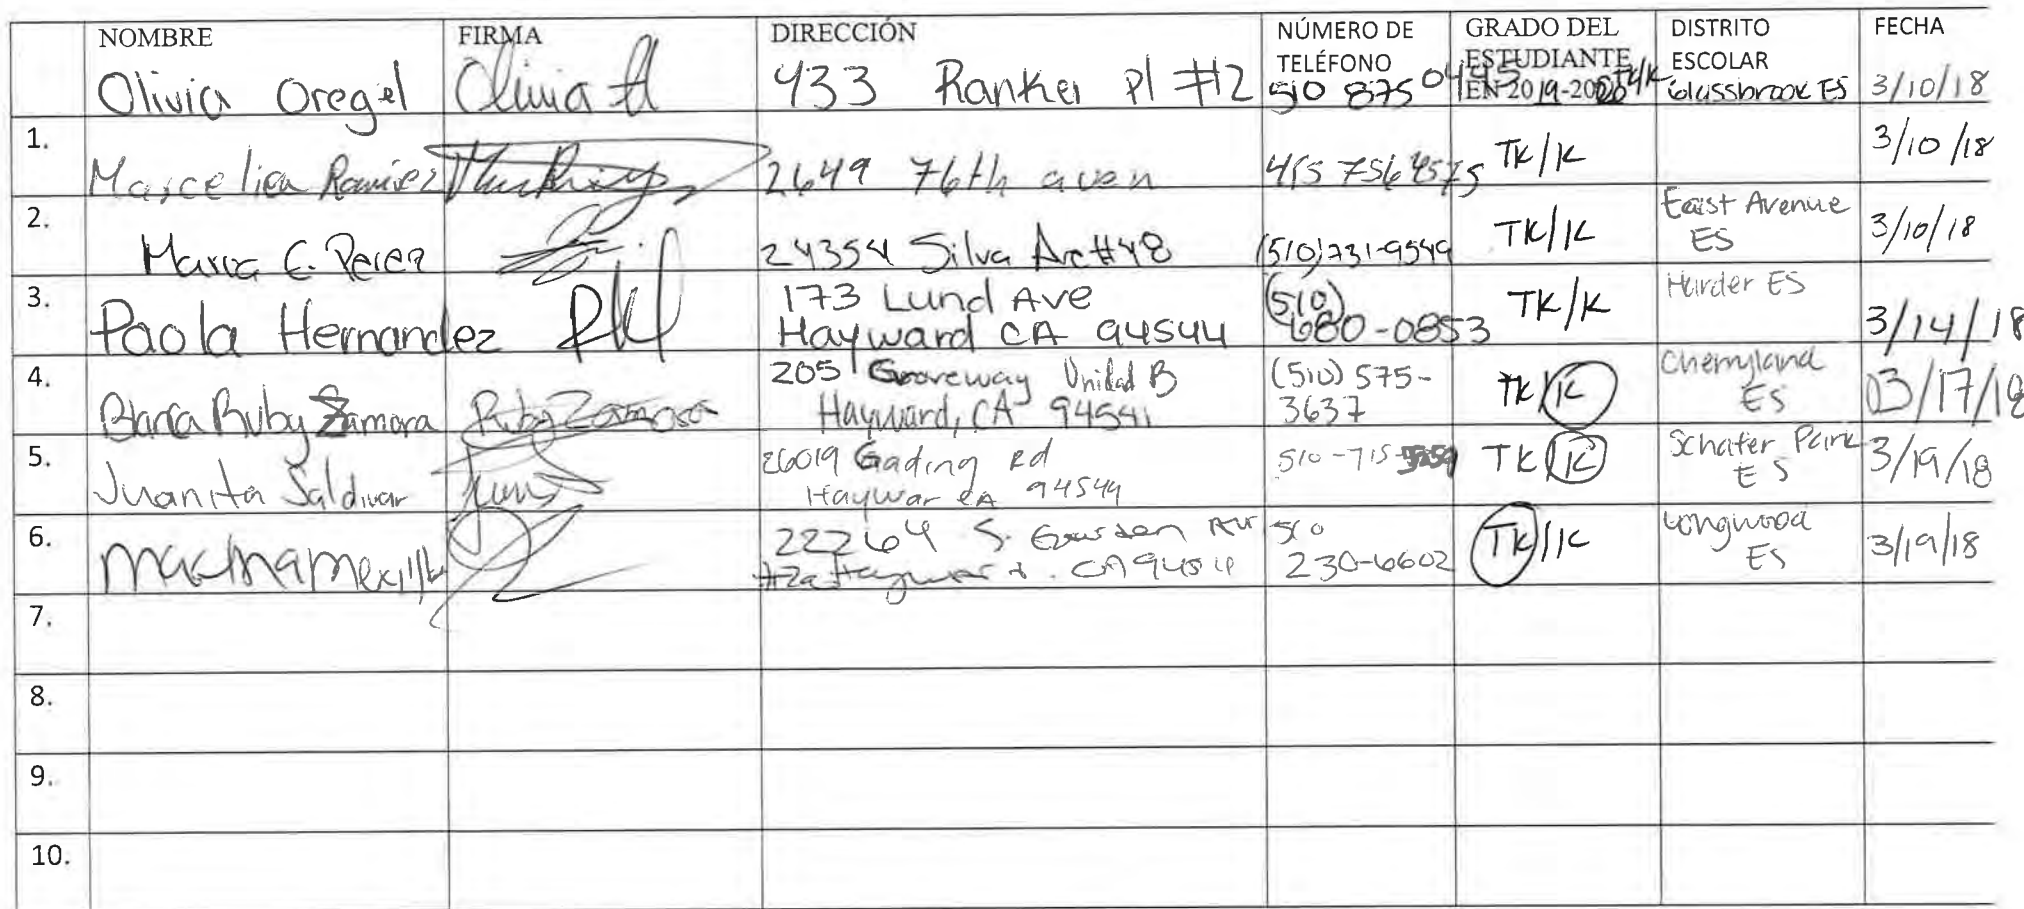 NOMBRE FIRMA DIRECCIÓN NÚMERO DE TELÉFONO GRADO DEL ESTUDIANTE EN 2019-2020 DISTRITO ESCOLAR FECHA
Olivia Oregel Olivia 433 Ranker Pl #2 510 875 TK/K Glassbrook ES 3/10/18
1. Marcelica Ramirez 2649 76th aven 415 756 4575 TK/K 3/10/18
2. Maria C. Perez 24354 Silva Ave #48 (510)731-9549 TK/K East Avenue ES 3/10/18
3. Paola Hernandez PH 173 Lund Ave
Hayward CA 94544 (510) 680-0853 TK/K Harder ES 3/14/18
4. Blanca Ruby Zamora Ruby Zamora 205 Groveway Unidad B
Hayward, CA 94541 (510) 575-3637 TK/K Cherryland ES 03/17/18
5. Juanita Saldivar 26019 Gading Rd
Haywar CA 94544 510-715- TK/K Schafer Park ES 3/19/18
6. 22264 S. Garden Ave
#2a Hayward. CA 510 230-6602 TK/K Longwood ES 3/19/18
7.
8.
9.
10.